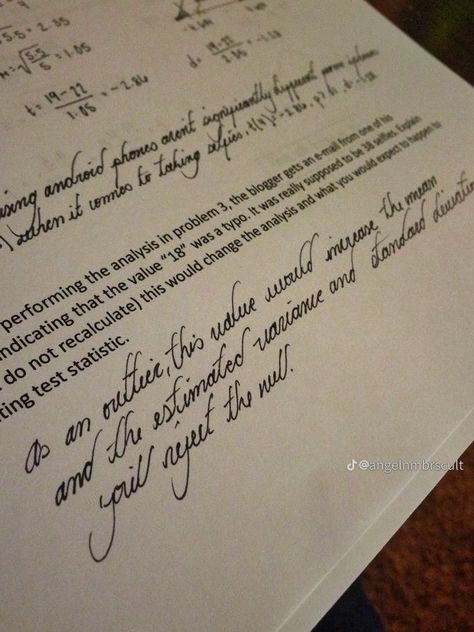 5.5 = 2.35
√5.5/5 = 1.05
t = 19-22/1.05 = -2.86
d = 19-22/2.35
using android phones arent significantly different from iphone
when it comes to taking selfies, t(4) = -2.86, p > .
performing the analysis in problem 3, the blogger gets an e-mail from one of his
indicating that the value "18" was a typo. It was really supposed to be 38 selfies. Explain
do not recalculate) this would change the analysis and what you would expect to happen to
ting test statistic.
as an outlier, this value would increase the mean
and the estimated variance and standard deviation
you'll reject the null.
@angelnmbrscult